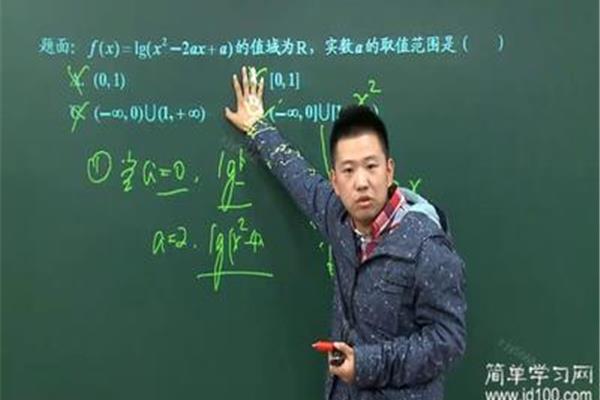 题面：f(x)=lg(x²-2ax+a)的值域为R，实数a的取值范围是（ ）
(0,1) [0,1]
(-∞,0)∪(1,+∞) (-∞,0]∪[
x²
① 当a=0, lg x
a=2. lg(x²-4x
简单学习网
www.jd100.com